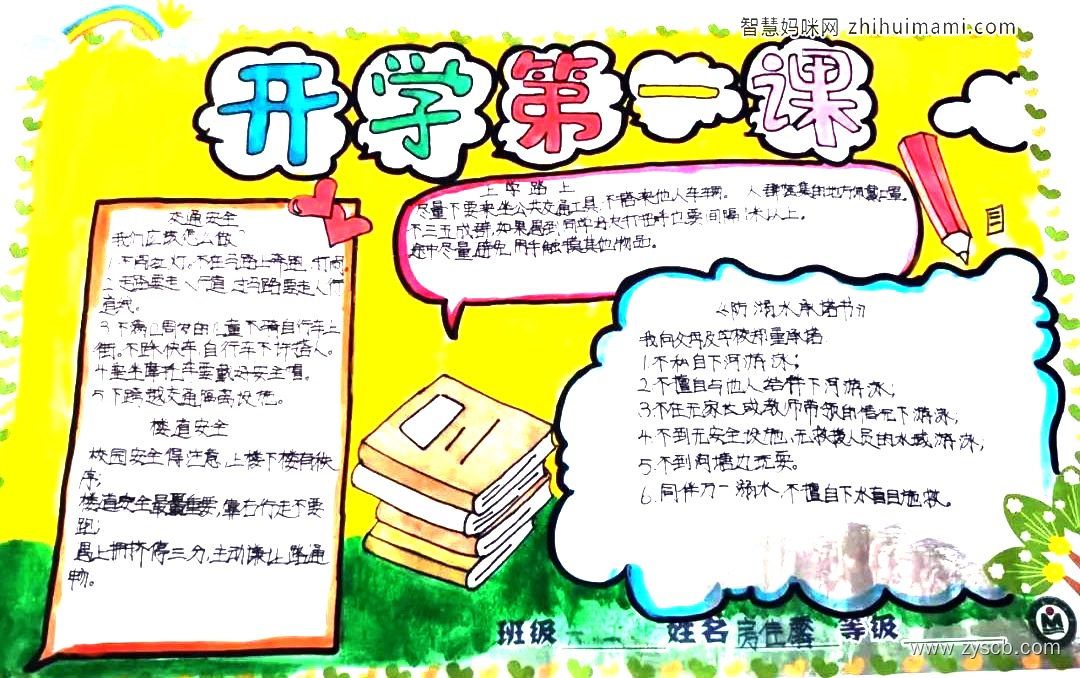 智慧妈咪网 zhihuimami.com
开学第一课
上学路上
尽量不要乘坐公共交通工具,不搭乘他人车辆。人群密集的地方佩戴口罩。
不三五成群,如果遇到同学朋友打招呼也要间隔1米以上。
途中尽量避免用手触摸其他物品。
交通安全
我们应该怎么做?
1.不闯红灯。不在马路上奔跑、打闹
2.走路要走人行道,过马路要走人行
道线。
3.不满12周岁的儿童不骑自行车上
街。不跃快车,自行车不许搭人。
4.乘坐摩托车要戴好安全帽。
5.不跨越交通隔离设施。
楼道安全
校园安全得注意,上楼下楼有秩
序;
楼道安全最重要,靠右行走不要
跑;
遇上拥挤停三分,主动谦让路通
畅。
《防溺水承诺书》
我向父母及学校郑重承诺
1.不私自下河游泳;
2.不擅自与他人结伴下河游泳;
3.不在无家长或教师带领的情况下游泳;
4.不到无安全设施、无救援人员的水域游泳;
5.不到河塘边玩耍。
6.同伴万一溺水,不擅自下水盲目施救。
班级 姓名 等级
www.zyscb.com